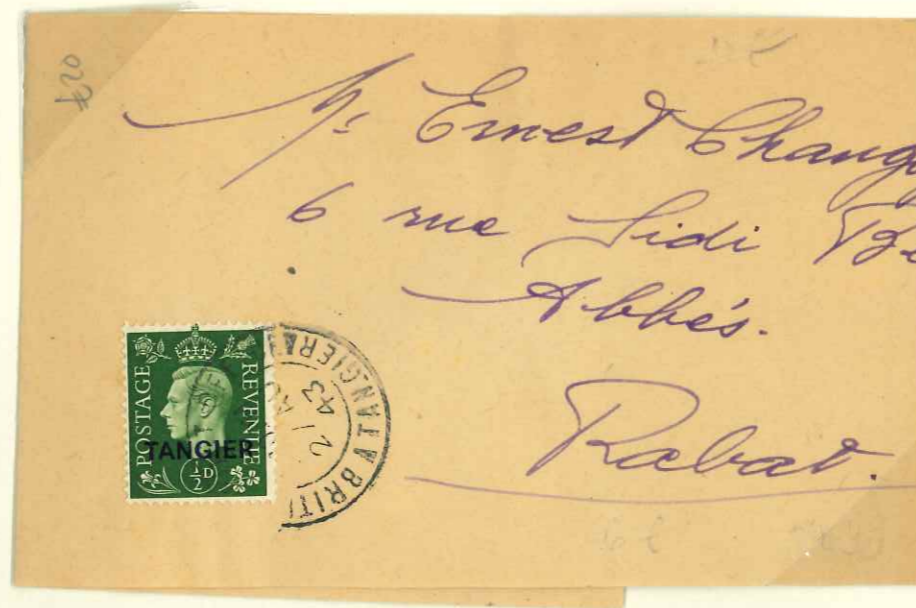 £20
Mr Ernest Chang
6 rue Sidi Be
Abbés.
Rabat.
POSTAGE REVENUE
TANGIER
½D
TANGIER
BRIT
21 AU
43